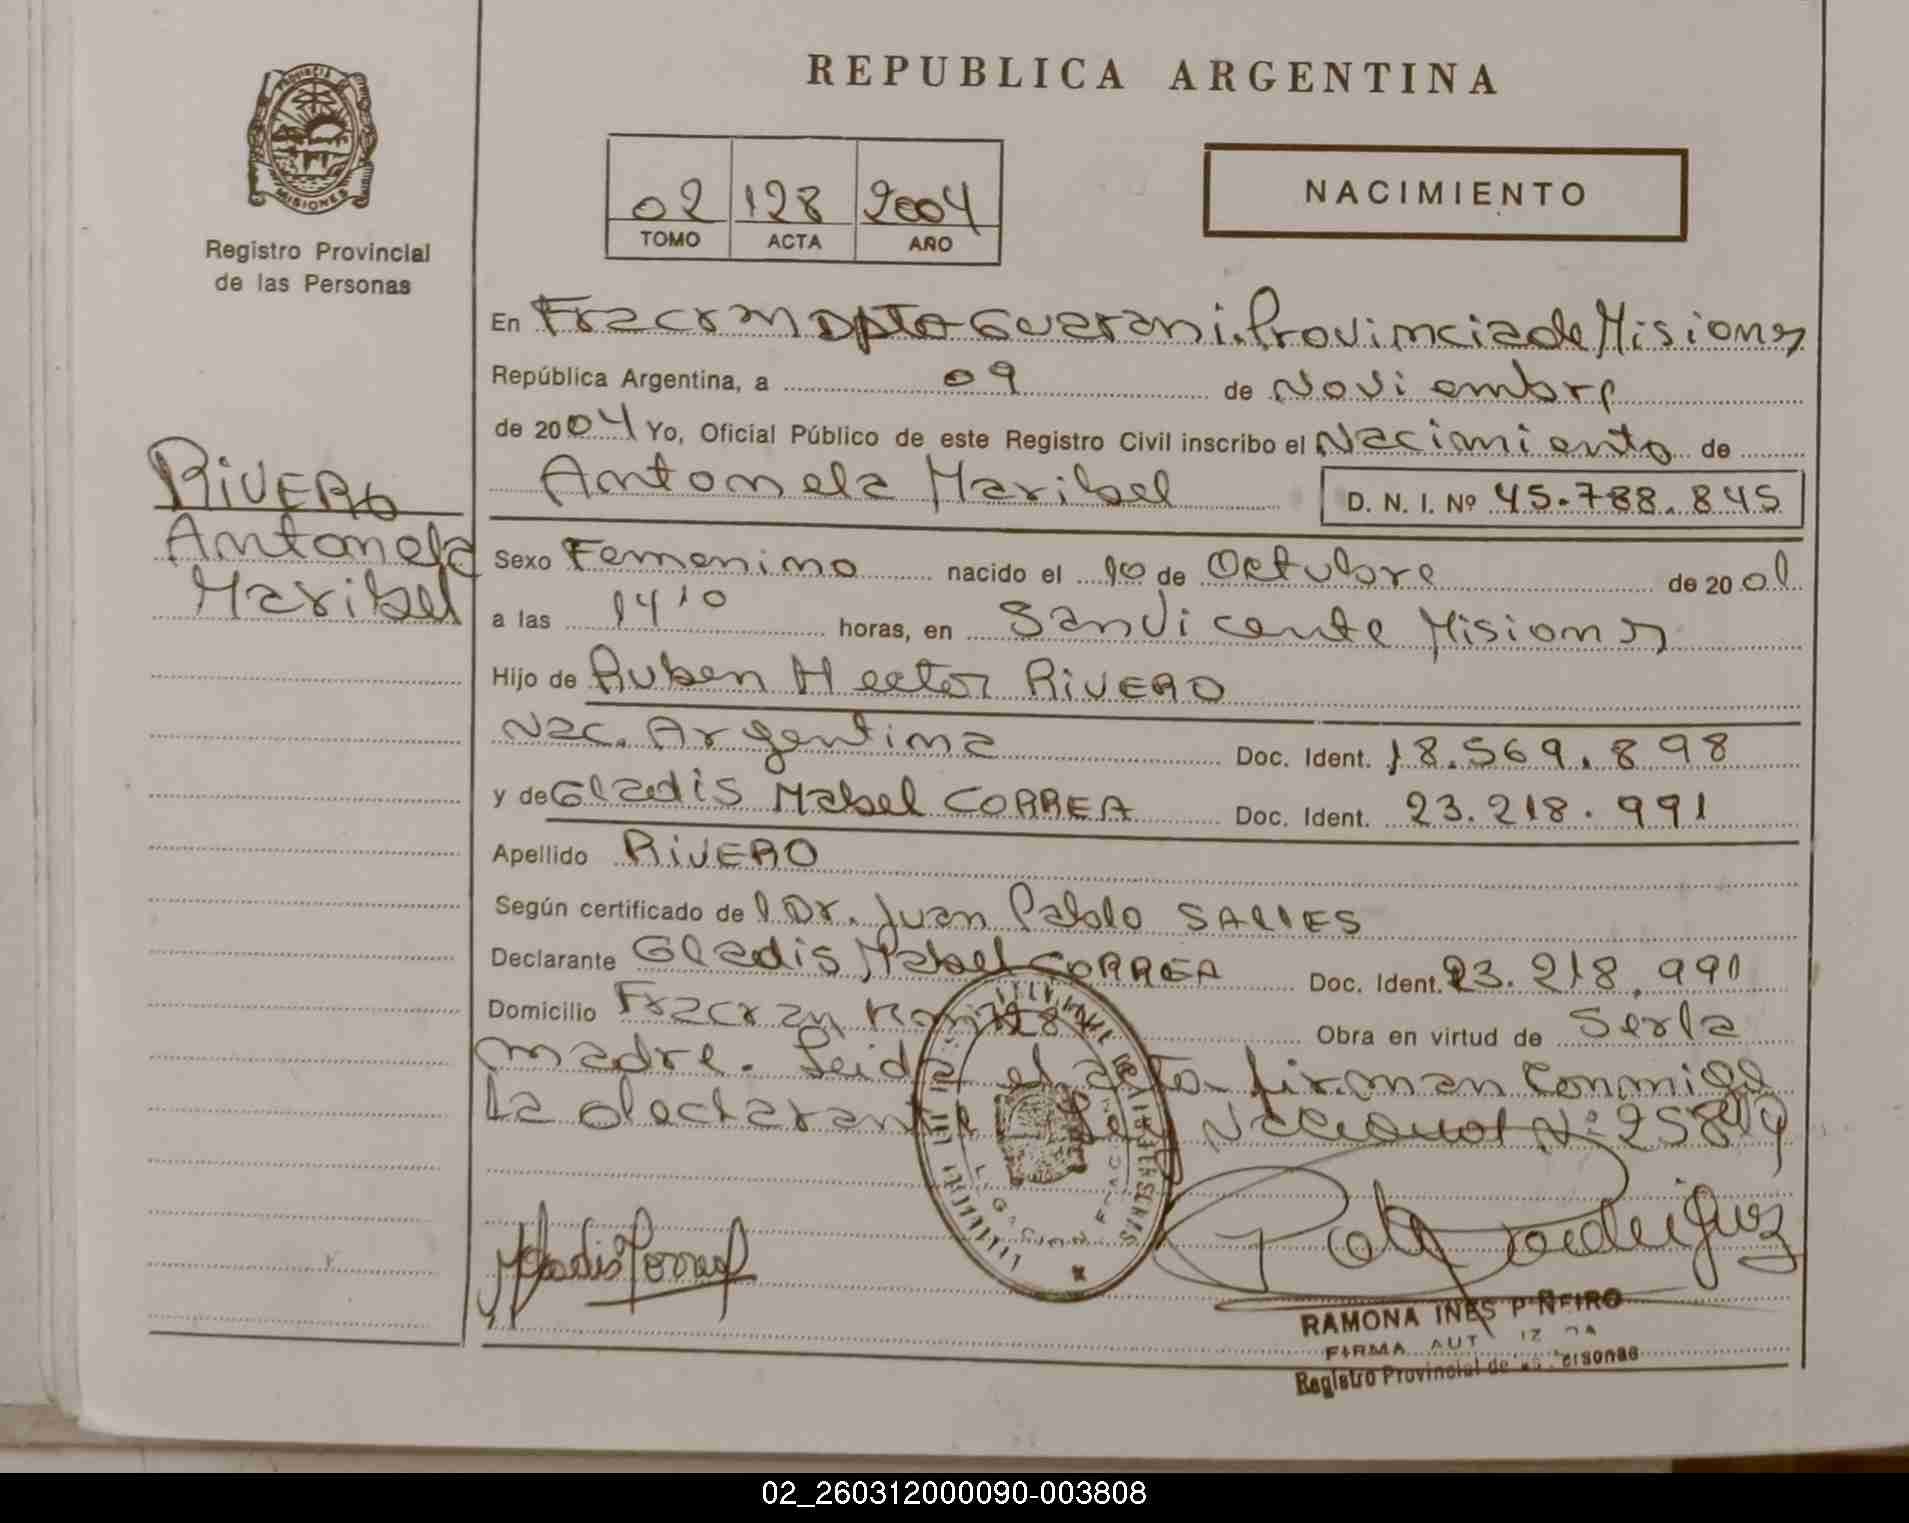 REPUBLICA ARGENTINA
PROVINCIA
MISIONES
Registro Provincial
de las Personas
02 128 2004
TOMO ACTA AÑO
NACIMIENTO
En Fracran Dpto Guarani. Provincia de Misiones
República Argentina, a 09 de Noviembre
de 2004 Yo, Oficial Público de este Registro Civil inscribo el Nacimiento de
Antonela Maribel D. N. I. Nº 45.788.845
RIVERO
Antonela
Maribel
Sexo Femenino nacido el 10 de Octubre de 2001
a las 14'10 horas, en San Vicente Misiones
Hijo de Ruben Hector RIVERO
Nac. Argentina Doc. Ident. 18.569.898
y de Gladis Mabel CORREA Doc. Ident. 23.218.991
Apellido RIVERO
Según certificado del Dr. Juan Pablo SALIES
Declarante Gladis Mabel CORREA Doc. Ident. 23.218.991
Domicilio Fracran Obra en virtud de Ser la
madre. Leida el acta firman conmigo
la declarante Ley Nacional Nº 25819
Gladis Correa
Rodriguez
RAMONA INES PIÑEIRO
FIRMA AUTORIZADA
Registro Provincial de las Personas
02_260312000090-003808